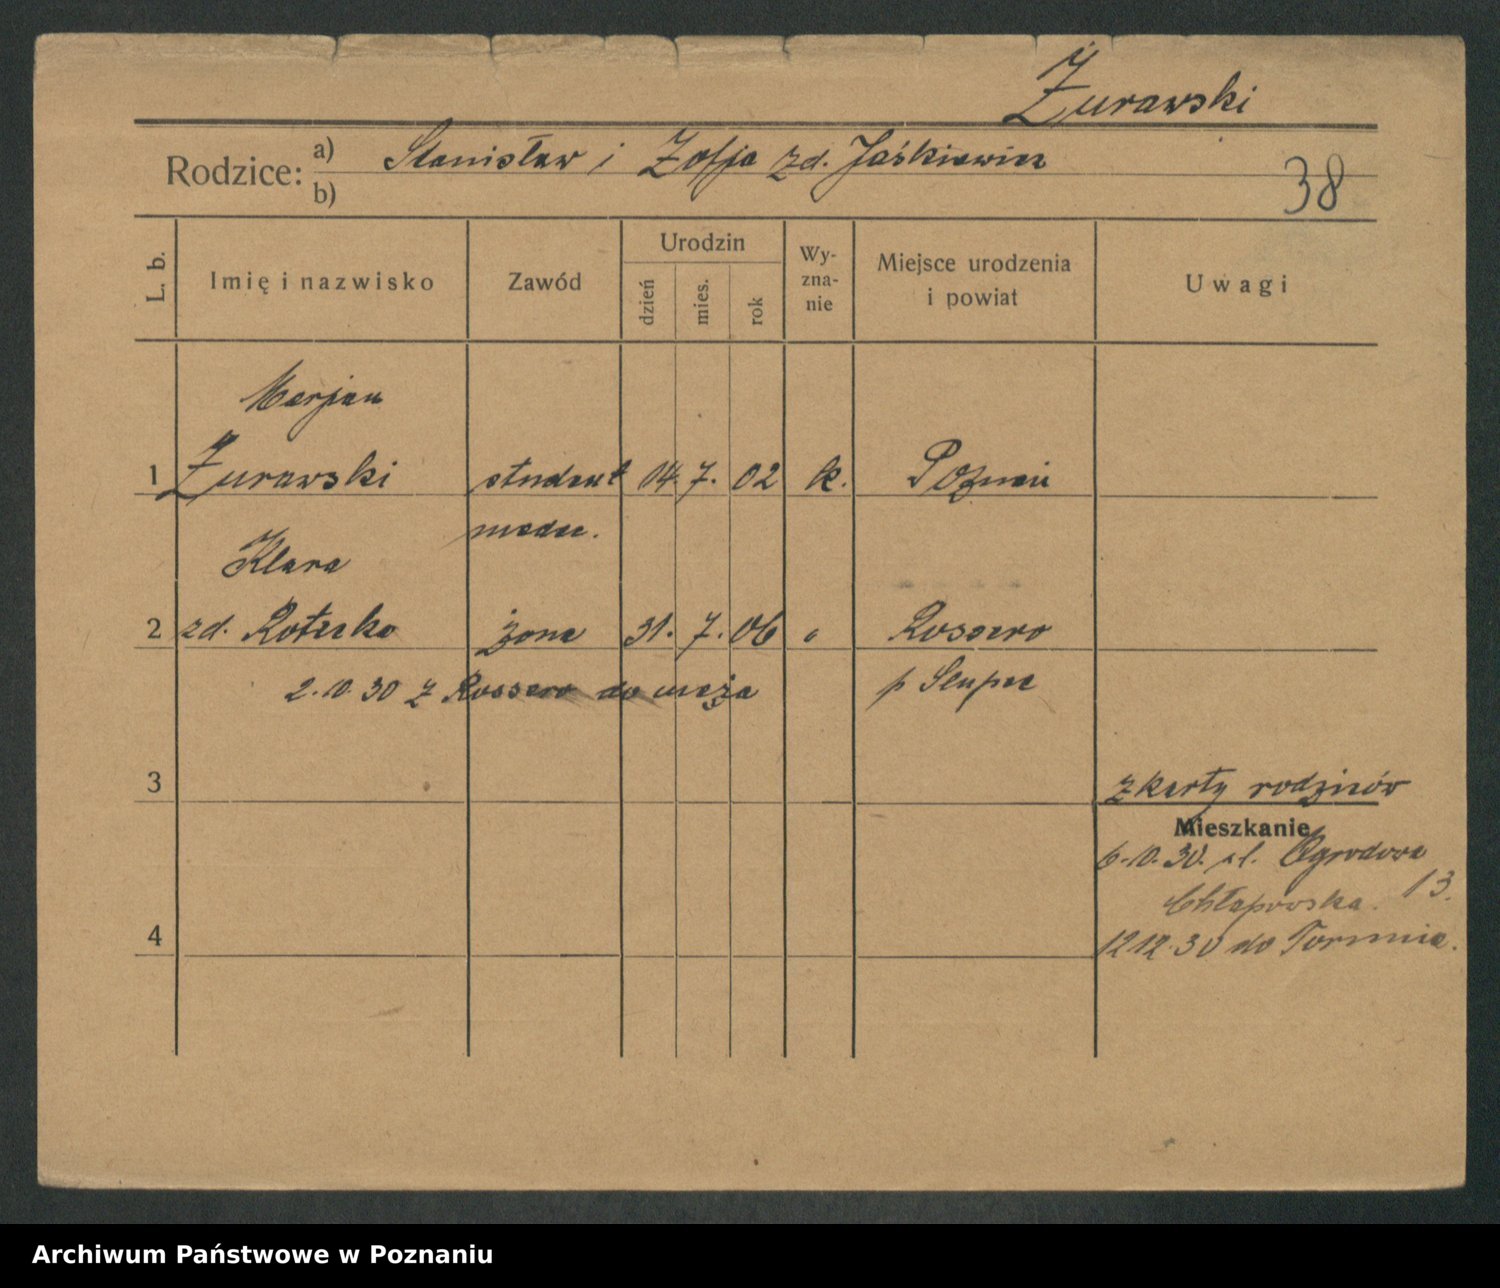 Żurawski
Rodzice: a) Stanisław i Zofja zd. Jaśkiewicz
b)
38
L. b.
Imię i nazwisko
Zawód
Urodzin
dzień
mies.
rok
Wy-
zna-
nie
Miejsce urodzenia
i powiat
Uwagi
Marjan
1 Żurawski student 04. 7. 02 k. Poznań
medec.
Klara
2 zd. żona 31. 7. 06 „
2.10.30 z do męża p Słupca
3
z karty rodziców
Mieszkanie
6.10.30. Ogrodowa
Chłapowska. 13.
4
12 12. 30 do Torunia.
Archiwum Państwowe w Poznaniu